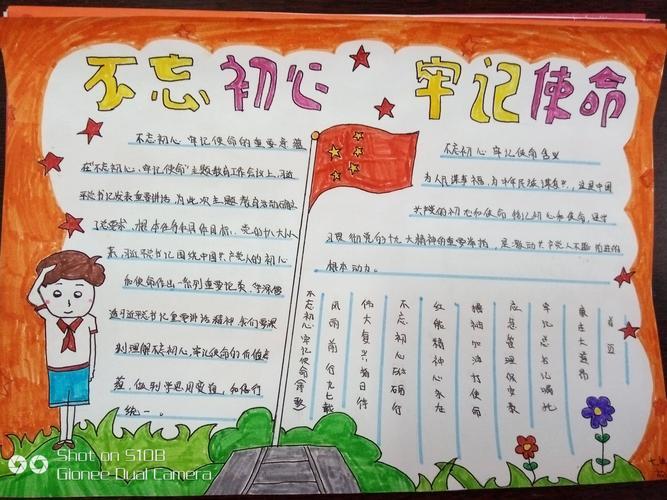 不忘初心 牢记使命
不忘初心 牢记使命的重要意义
在"不忘初心、牢记使命"主题教育工作会议上,习近
平总书记发表重要讲话 为此次主题教育活动
了总要求、根本任务 具体目标. 党的十八大以
来,习近平总书记围绕中国共产党人的初心
和使命作出一系列重要论述.
习近平总书记重要讲话精神 我们要深
刻理解不忘初心,牢记使命的价值意
蕴,做到学思用贯通,知信行
统一。
不忘初心 牢记使命含义
为人民谋幸福,为中华民族谋复兴,这是中国
共产党的初心和使命 牢记初心和使命,这是
习贯彻党的十九大精神的重要 是激励共产党人不断前进的
根本动力。
首
奔
牢记总书记嘱托
撸袖加油为使命
红船精神心永在
不忘初心砥砺行
伟大复兴指日待
风雨前行九七载
不忘初心 牢记使命(诗歌)
Shot on S10B
Gionee Dual Camera